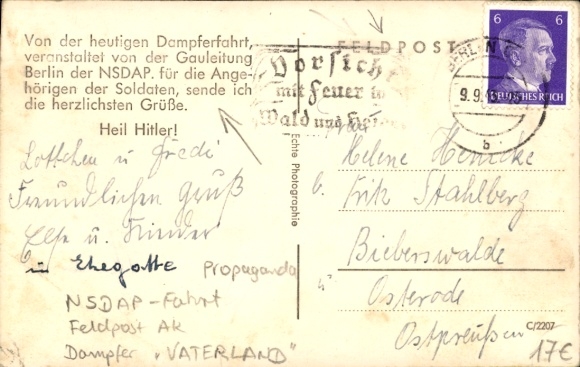 Von der heutigen Dampferfahrt,
veranstaltet von der Gauleitung
Berlin der NSDAP. für die Ange-
hörigen der Soldaten, sende ich
die herzlichsten Grüße.
Heil Hitler!
Lottchen u Fredi
Freundlichen Gruß
Else u. Kinder
u Ehegatte
Propaganda
NSDAP-Fahrt
Feldpost AK
Dampfer "VATERLAND"
Echte Photographie
FELDPOST
Vorsicht
mit Feuer in
Wald und Heide
BERLIN
9.9.
b
6 6
DEUTSCHES REICH
Helene
b. Erik Stahlberg
Bieberswalde
Osterode
Ostpreußen
C/2207
17€